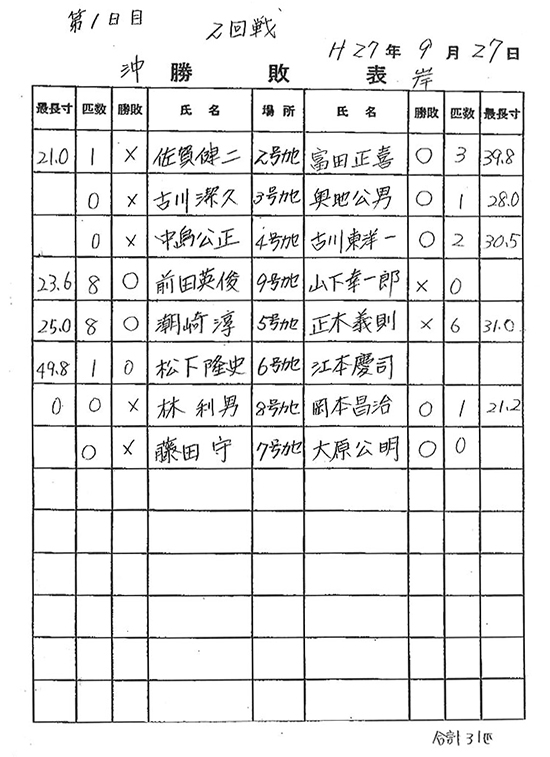 第1日目 2回戦
H27年9月27日
沖 勝敗表 岸
最長寸 匹数 勝敗 氏名 場所 氏名 勝敗 匹数 最長寸
21.0 1 × 佐賀健二 2号地 富田正喜 ○ 3 39.8
0 × 古川深久 3号地 奥地公男 ○ 1 28.0
0 × 中島公正 4号地 古川東洋一 ○ 2 30.5
23.6 8 ○ 前田英俊 9号地 山下幸一郎 × 0
25.0 8 ○ 潮崎淳 5号地 正木義則 × 6 31.0
49.8 1 ○ 松下隆史 6号地 江本慶司
0 0 × 林利男 8号地 岡本昌治 ○ 1 21.2
0 × 藤田守 7号地 大原公明 ○ 0
合計31匹